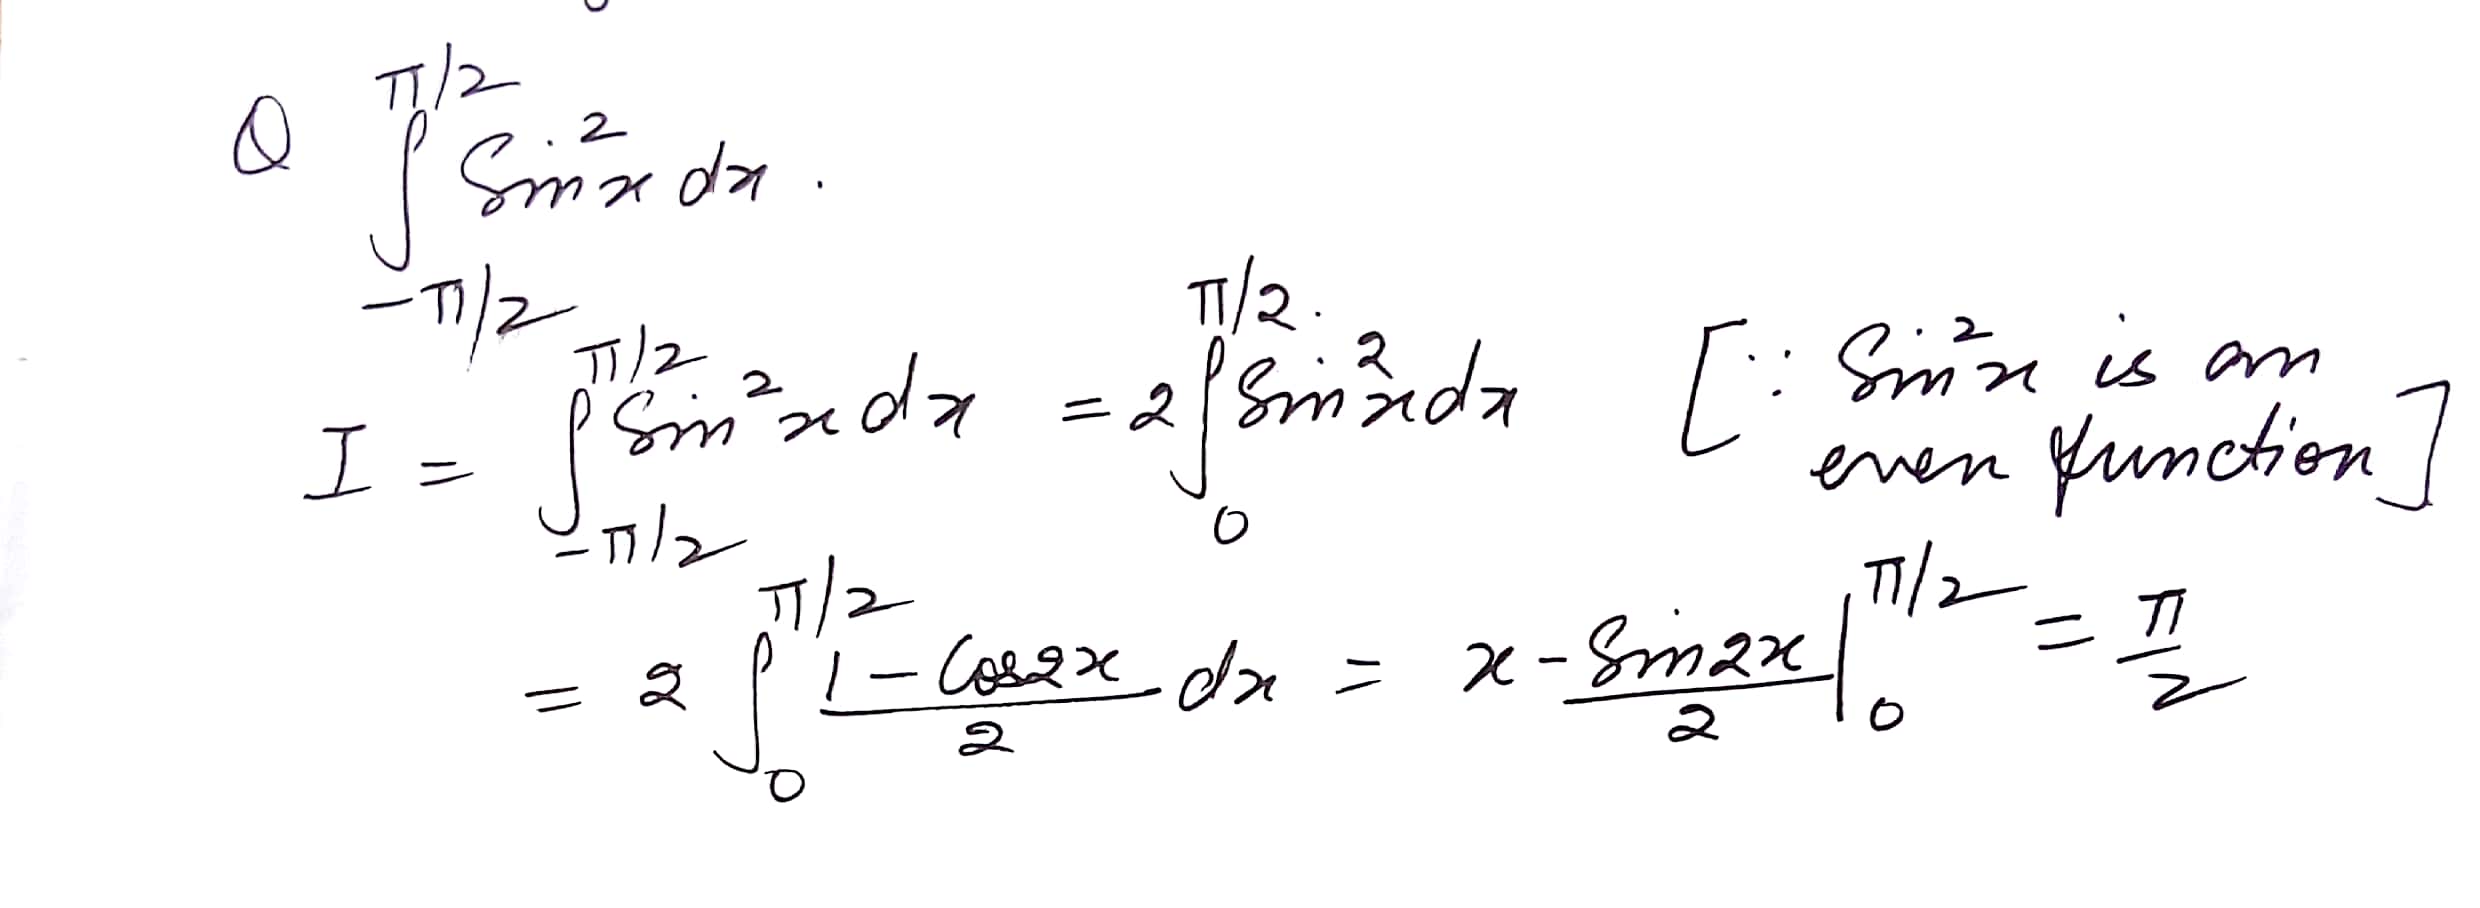 Q ∫_{-π/2}^{π/2} Sin²x dx.
I = ∫_{-π/2}^{π/2} Sin²x dx = 2∫_{0}^{π/2} Sin²x dx [∵ Sin²x is an
even function]
= 2 ∫_{0}^{π/2} (1 - Cos2x)/2 dx = x - Sin2x/2 |_{0}^{π/2} = π/2